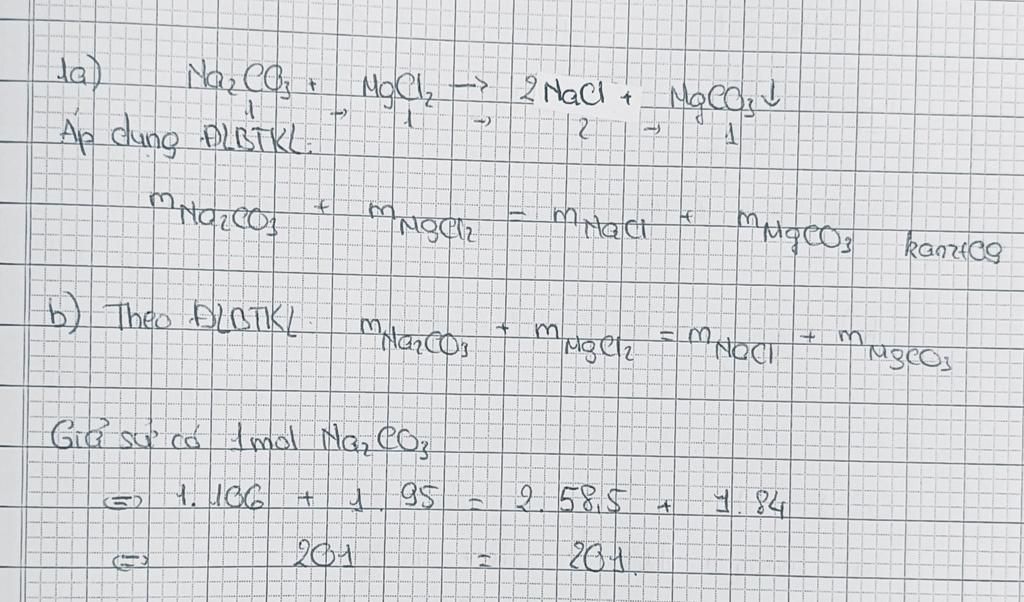 1a) Na₂CO₃ + MgCl₂ → 2NaCl + MgCO₃↓
1 → 1 → 2 → 1
Áp dụng ĐLBTKL:
mNa₂CO₃ + mMgCl₂ = mNaCl + mMgCO₃
b) Theo ĐLBTKL: mNa₂CO₃ + mMgCl₂ = mNaCl + mMgCO₃
Giả sử có 1mol Na₂CO₃
⇔ 1.106 + 1.95 = 2.58,5 + 1.84
⇔ 201 = 201.